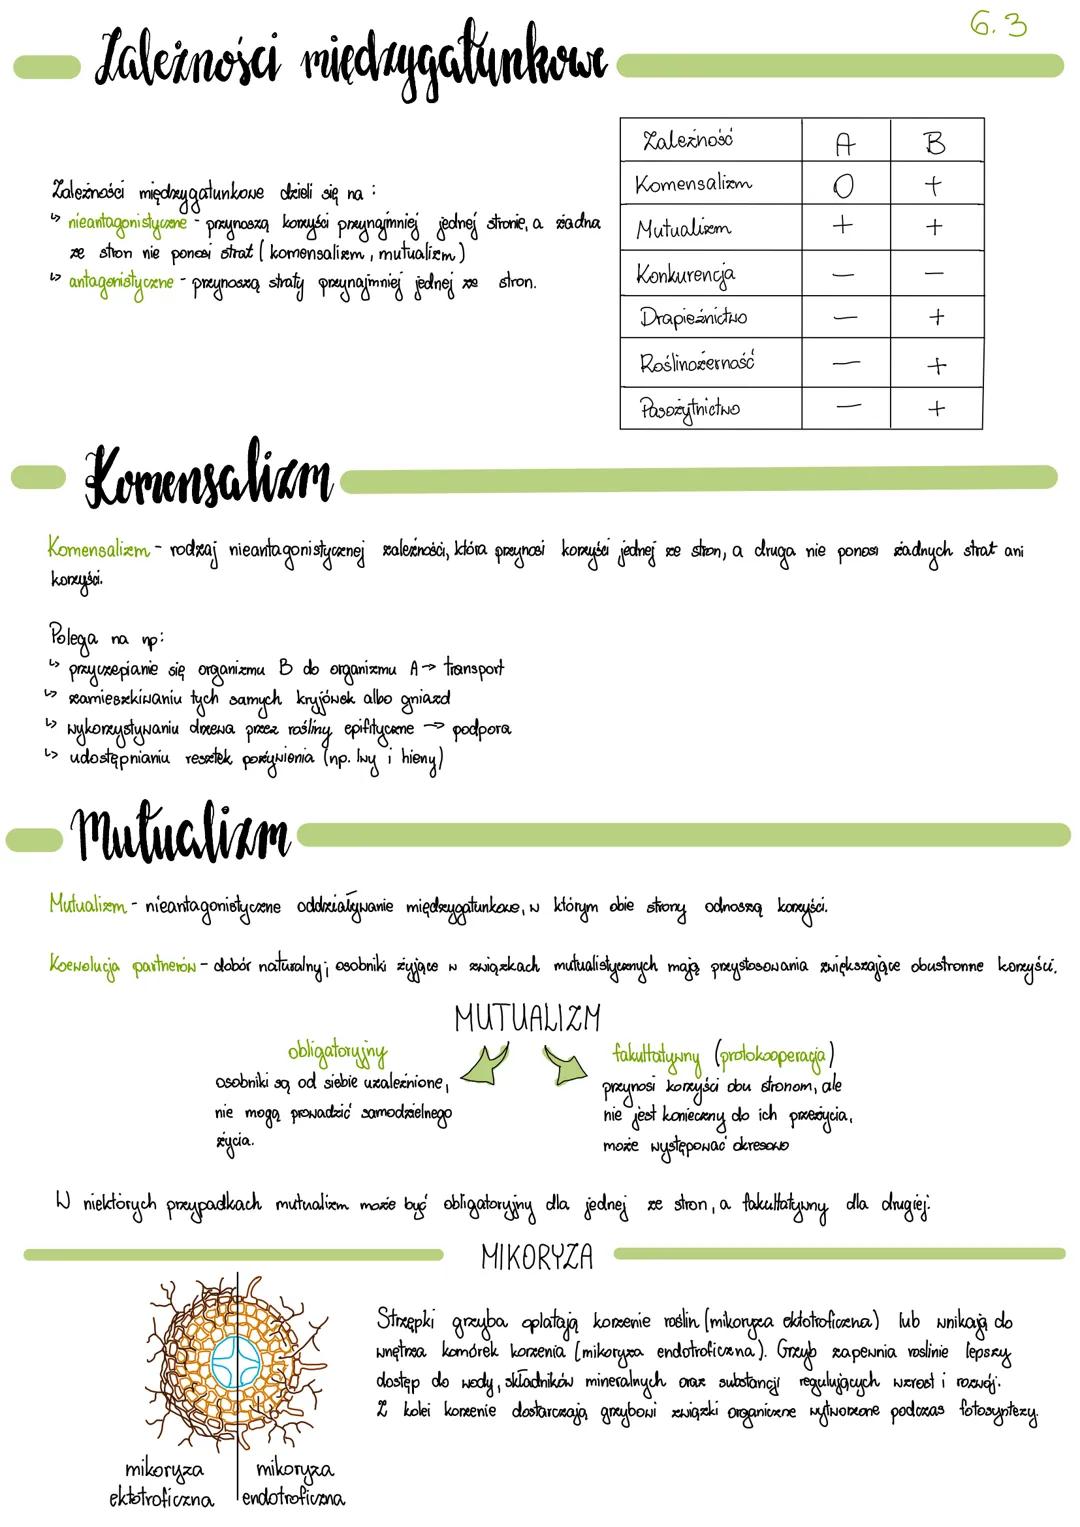 6.3
Zależności międzygatunkowe
Zależności międzygatunkowe dzieli się na :
↳ nieantagonistyczne - przynoszą korzyści przynajmniej jednej stronie, a żadna
ze stron nie ponosi strat ( komensalizm, mutualizm )
↳ antagonistyczne - przynoszą straty przynajmniej jednej ze stron.
Zależność A B
Komensalizm O +
Mutualizm + +
Konkurencja — —
Drapieżnictwo — +
Roślinożerność — +
Pasożytnictwo — +
Komensalizm
Komensalizm - rodzaj nieantagonistycznej zależności, która przynosi korzyści jednej ze stron, a druga nie ponosi żadnych strat ani
korzyści.
Polega na np:
↳ przyczepianie się organizmu B do organizmu A → transport
↳ zamieszkiwaniu tych samych kryjówek albo gniazd
↳ wykorzystywaniu drzewa przez rośliny epifityczne → podpora
↳ udostępnianiu resztek pożywienia (np. lwy i hieny)
Mutualizm
Mutualizm - nieantagonistyczne oddziaływanie międzygatunkowe, w którym obie strony odnoszą korzyści.
Koewolucja partnerów - dobór naturalny; osobniki żyjące w związkach mutualistycznych mają przystosowania zwiększające obustronne korzyści.
MUTUALIZM
obligatoryjny
osobniki są od siebie uzależnione,
nie mogą prowadzić samodzielnego
życia.
fakultatywny (protokooperacja)
przynosi korzyści obu stronom, ale
nie jest konieczny do ich przeżycia,
może występować okresowo
W niektórych przypadkach mutualizm może być obligatoryjny dla jednej ze stron, a fakultatywny dla drugiej.
MIKORYZA
Strzępki grzyba oplatają korzenie roślin (mikoryza ektotroficzna) lub wnikają do
wnętrza komórek korzenia (mikoryza endotroficzna). Grzyb zapewnia roślinie lepszy
dostęp do wody, składników mineralnych oraz substancji regulujących wzrost i rozwój.
Z kolei korzenie dostarczają grzybowi związki organiczne wytworzone podczas fotosyntezy.
mikoryza
ektotroficzna
mikoryza
endotroficzna